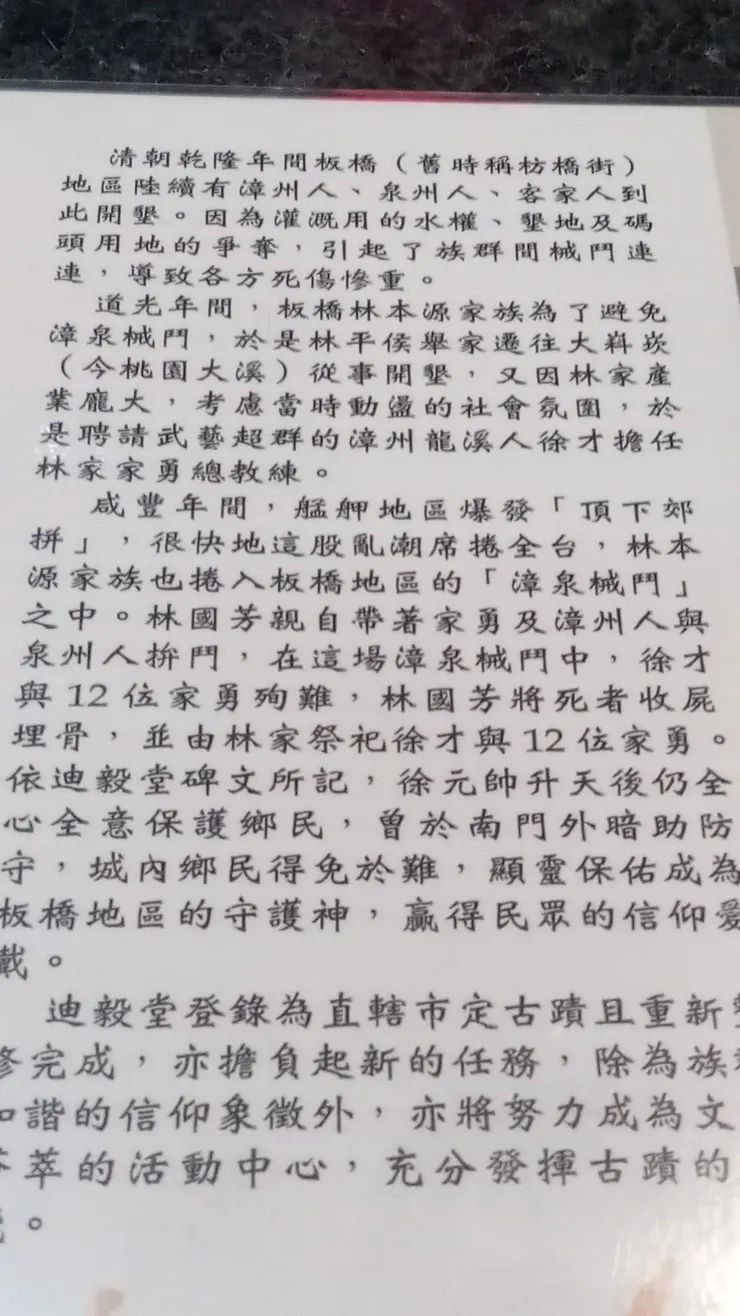 清朝乾隆年間板橋（舊時稱枋橋街）
地區陸續有漳州人、泉州人、客家人到
此開墾。因為灌溉用的水權、墾地及碼
頭用地的爭奪，引起了族群間械鬥連
連，導致各方死傷慘重。
道光年間，板橋林本源家族為了避免
漳泉械鬥，於是林平侯舉家遷往大嵙崁
（今桃園大溪）從事開墾，又因林家產
業龐大，考慮當時動盪的社會氛圍，於
是聘請武藝超群的漳州龍溪人徐才擔任
林家家勇總教練。
咸豐年間，艋舺地區爆發「頂下郊
拼」，很快地這股亂潮席捲全台，林本
源家族也捲入板橋地區的「漳泉械鬥」
之中。林國芳親自帶著家勇及漳州人與
泉州人拚鬥，在這場漳泉械鬥中，徐才
與12位家勇殉難，林國芳將死者收屍
埋骨，並由林家祭祀徐才與12位家勇。
依迪毅堂碑文所記，徐元帥升天後仍全
心全意保護鄉民，曾於南門外暗助防
守，城內鄉民得免於難，顯靈保佑成為
板橋地區的守護神，贏得民眾的信仰愛
戴。
迪毅堂登錄為直轄市定古蹟且重新
修完成，亦擔負起新的任務，除為族
和諧的信仰象徵外，亦將努力成為文
薈萃的活動中心，充分發揮古蹟的
。